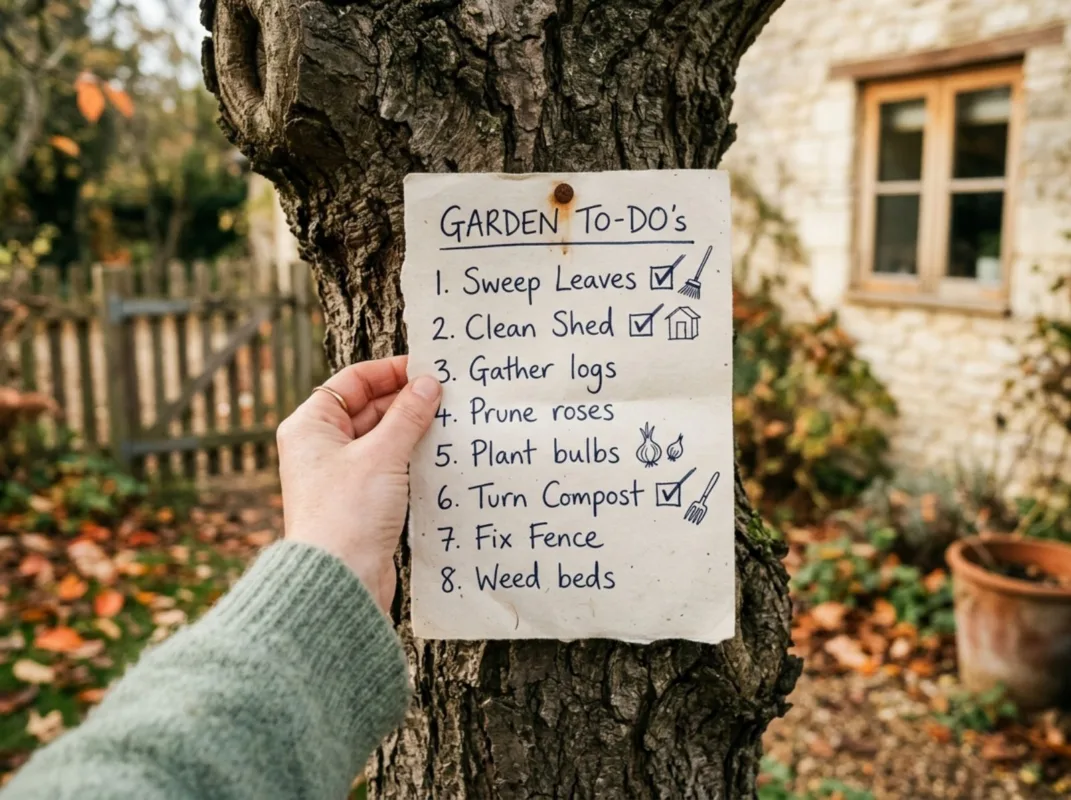 GARDEN TO-DO's
1. Sweep Leaves
2. Clean Shed
3. Gather logs
4. Prune roses
5. Plant bulbs
6. Turn Compost
7. Fix Fence
8. Weed beds